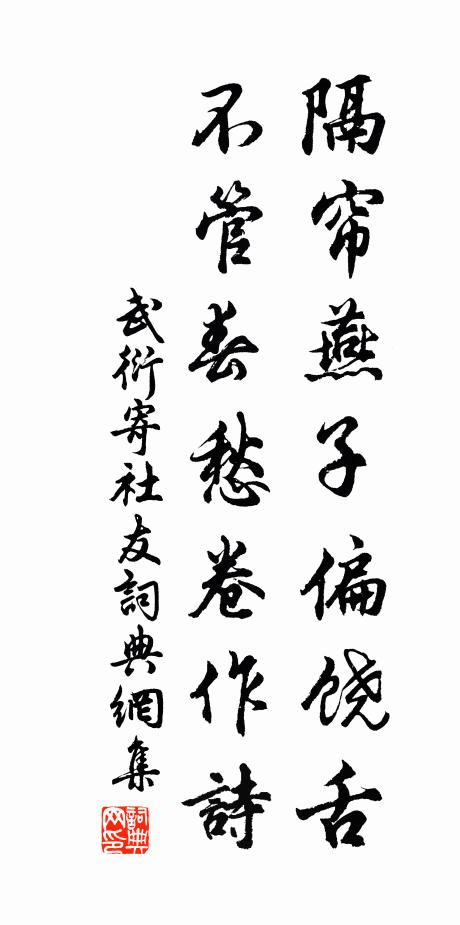 隔帘燕子偏饶舌
不管春愁卷作詩
武衍寄社友詞典網集
詞典网印